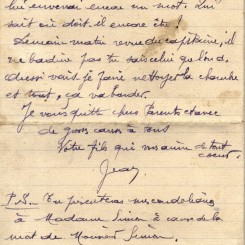 lui enverrai encore un mot. Qui
sait où doit-il encore être !
Demain matin revue du capitaine, il
ne badine pas tu sais celui que
aussi vais-je faire nettoyer la chambre
et tout, ça va barder.
Je vous quitte chers Parents et avec
de gros à tous
Votre fils qui vous aime de tout
coeur.
Jean
P.S. Tu présenteras mes condoléances
à Madame Simon à cause de la
mort de Monsieur Simon.